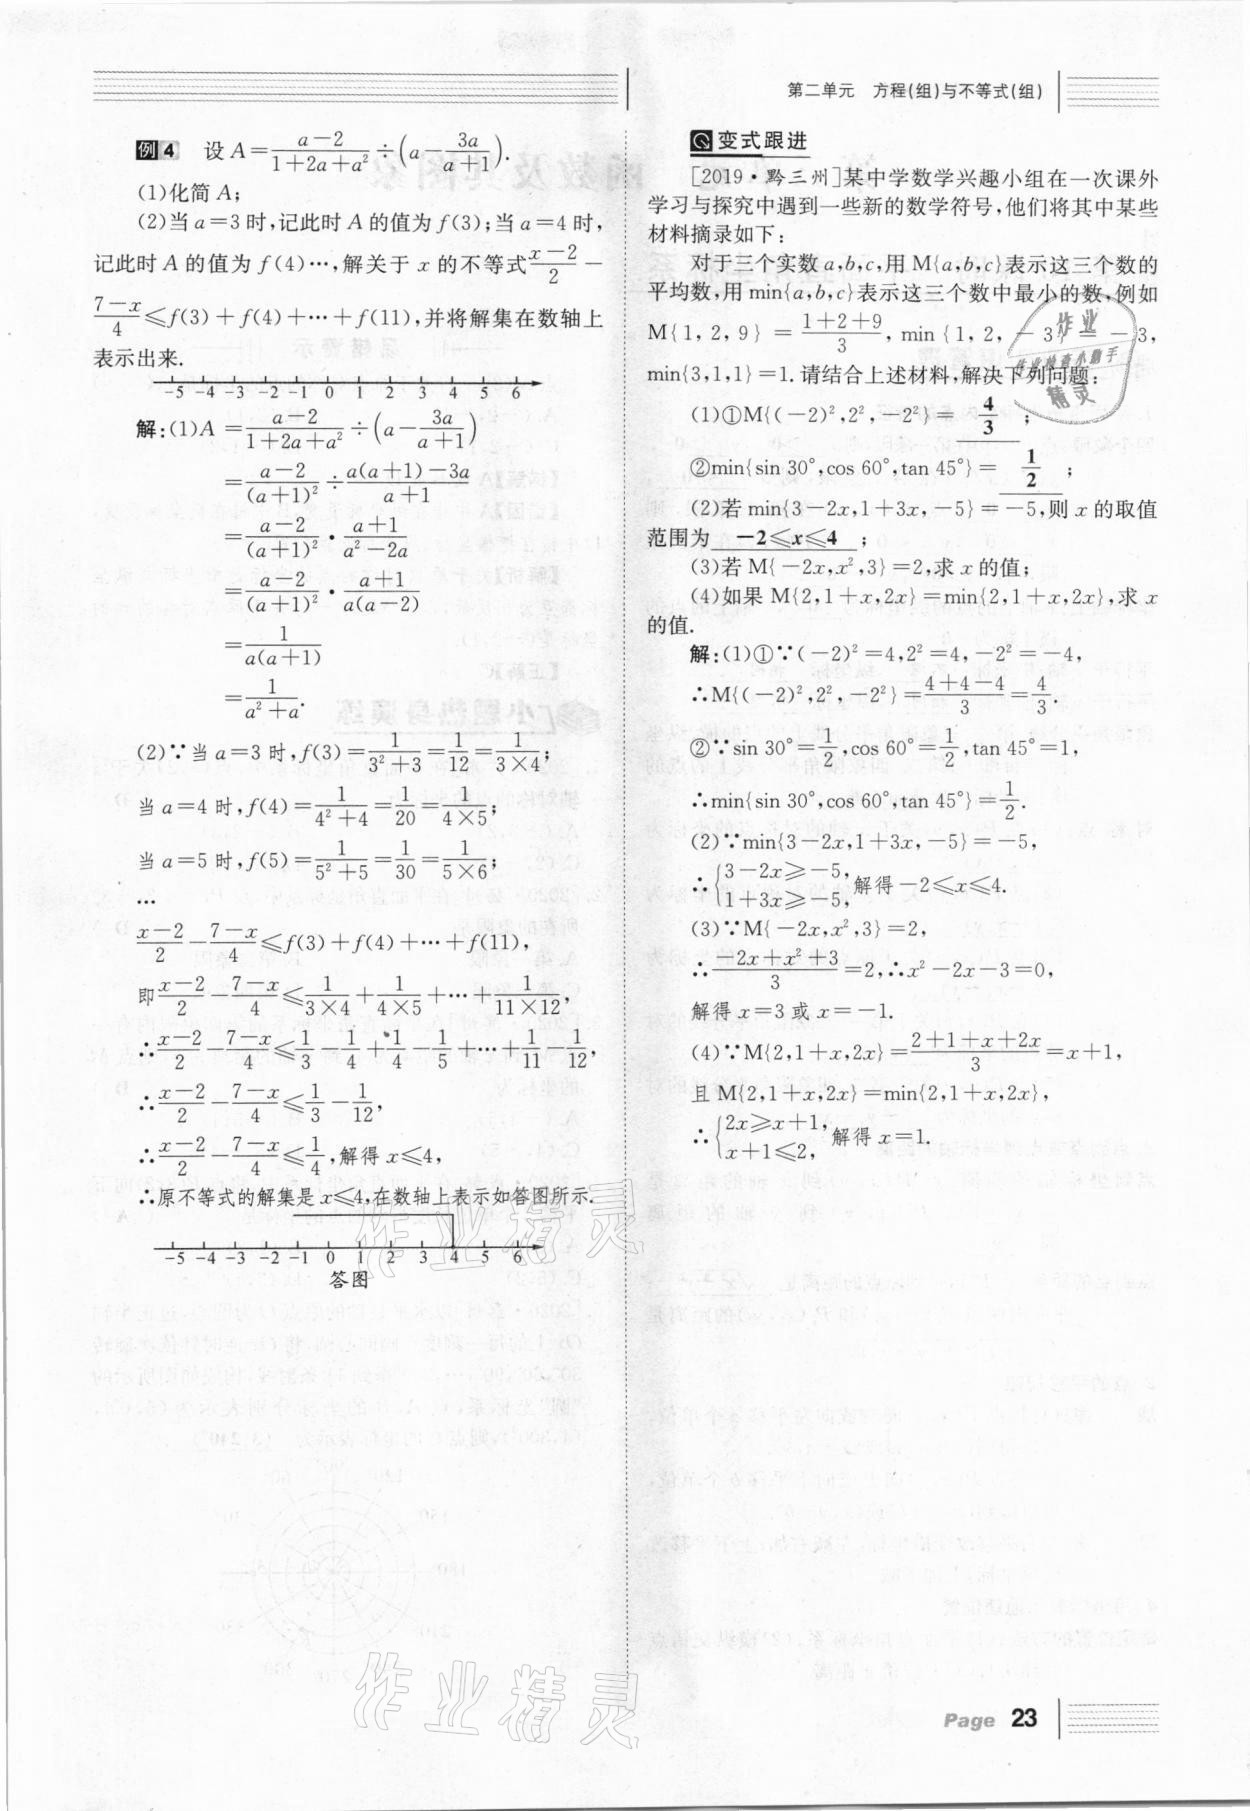 第二单元 方程(组)与不等式(组)
例4 设 A=\frac{a-2}{1+2a+a²}÷(a-\frac{3a}{a+1}).
(1)化简 A;
(2)当 a=3 时,记此时 A 的值为 f(3);当 a=4 时,
记此时 A 的值为 f(4)…,解关于 x 的不等式\frac{x-2}{2}-
\frac{7-x}{4}≤f(3)+f(4)+…+f(11),并将解集在数轴上
表示出来.
-5 -4 -3 -2 -1 0 1 2 3 4 5 6
解:(1)A=\frac{a-2}{1+2a+a²}÷(a-\frac{3a}{a+1})
=\frac{a-2}{(a+1)²}÷\frac{a(a+1)-3a}{a+1}
=\frac{a-2}{(a+1)²}·\frac{a+1}{a²-2a}
=\frac{a-2}{(a+1)²}·\frac{a+1}{a(a-2)}
=\frac{1}{a(a+1)}
=\frac{1}{a²+a}.
(2)∵当 a=3 时,f(3)=\frac{1}{3²+3}=\frac{1}{12}=\frac{1}{3×4};
当 a=4 时,f(4)=\frac{1}{4²+4}=\frac{1}{20}=\frac{1}{4×5};
当 a=5 时,f(5)=\frac{1}{5²+5}=\frac{1}{30}=\frac{1}{5×6};
…
\frac{x-2}{2}-\frac{7-x}{4}≤f(3)+f(4)+…+f(11),
即\frac{x-2}{2}-\frac{7-x}{4}≤\frac{1}{3×4}+\frac{1}{4×5}+…+\frac{1}{11×12},
∴\frac{x-2}{2}-\frac{7-x}{4}≤\frac{1}{3}-\frac{1}{4}+\frac{1}{4}-\frac{1}{5}+…+\frac{1}{11}-\frac{1}{12},
∴\frac{x-2}{2}-\frac{7-x}{4}≤\frac{1}{3}-\frac{1}{12},
∴\frac{x-2}{2}-\frac{7-x}{4}≤\frac{1}{4},解得 x≤4,
∴原不等式的解集是 x≤4,在数轴上表示如答图所示.
-5 -4 -3 -2 -1 0 1 2 3 4 5 6
答图
变式跟进
[2019·黔三州]某中学数学兴趣小组在一次课外
学习与探究中遇到一些新的数学符号,他们将其中某些
材料摘录如下:
对于三个实数 a,b,c,用 M{a,b,c}表示这三个数的
平均数,用 min{a,b,c}表示这三个数中最小的数,例如
M{1,2,9}=\frac{1+2+9}{3},min{1,2,-3}=-3,
min{3,1,1}=1.请结合上述材料,解决下列问题:
(1)①M{(-2)²,2²,-2²}= \frac{4}{3} ;
②min{sin 30°,cos 60°,tan 45°}= \frac{1}{2} ;
(2)若 min{3-2x,1+3x,-5}=-5,则 x 的取值
范围为 -2≤x≤4 ;
(3)若 M{-2x,x²,3}=2,求 x 的值;
(4)如果 M{2,1+x,2x}=min{2,1+x,2x},求 x
的值.
解:(1)①∵(-2)²=4,2²=4,-2²=-4,
∴M{(-2)²,2²,-2²}=\frac{4+4-4}{3}=\frac{4}{3}.
②∵sin 30°=\frac{1}{2},cos 60°=\frac{1}{2},tan 45°=1,
∴min{sin 30°,cos 60°,tan 45°}=\frac{1}{2}.
(2)∵min{3-2x,1+3x,-5}=-5,
∴{3-2x≥-5,
1+3x≥-5, 解得-2≤x≤4.
(3)∵M{-2x,x²,3}=2,
∴\frac{-2x+x²+3}{3}=2,∴x²-2x-3=0,
解得 x=3 或 x=-1.
(4)∵M{2,1+x,2x}=\frac{2+1+x+2x}{3}=x+1,
且 M{2,1+x,2x}=min{2,1+x,2x},
∴{2x≥x+1,
x+1≤2, 解得 x=1.
作业
作业检查小助手
精灵
作业精灵
作业精灵
Page 23